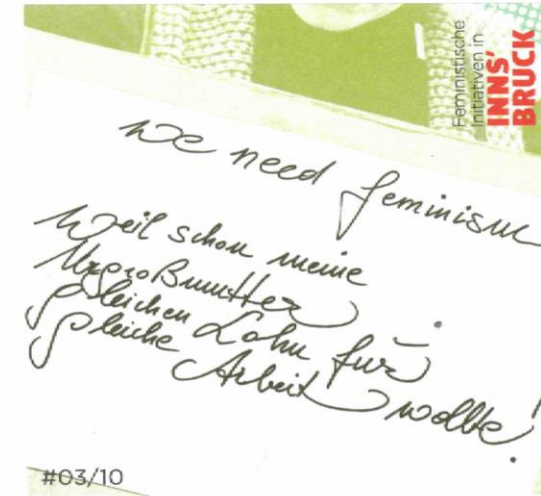 Feministische
Initiativen in
INNS'
BRUCK
we need feminism
Weil schon meine
Urgroßmutter
gleichen Lohn für
gleiche Arbeit wollte!
#03/10